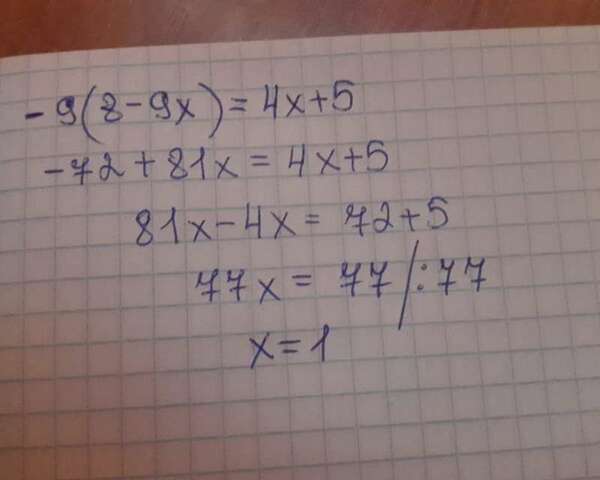 -9(8-9x)=4x+5
-72+81x=4x+5
81x-4x=72+5
77x=77/:77
x=1